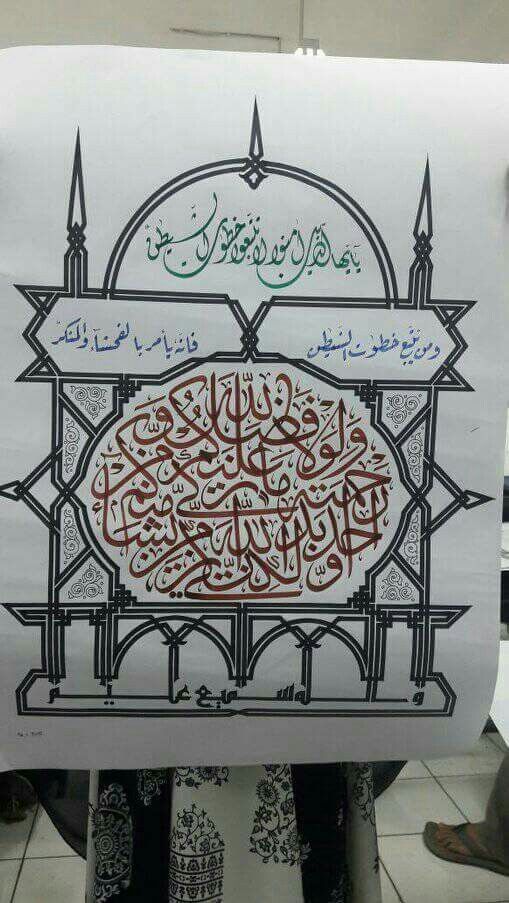 يايها الذين امنوا لا تتبعوا خطوت الشيطن
ومن يتبع خطوت الشيطن فانه يأمر بالفحشاء والمنكر
ولولا فضل الله عليكم ورحمته ما زكى منكم من احد ابدا ولكن الله يزكي من يشاء
والله سميع عليم